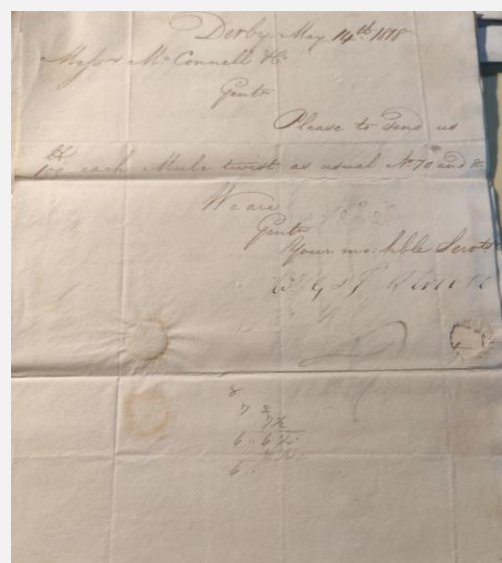 Derby May 14th 1818
Messrs McConnell & Co
Gents
Please to Send us
100 each Mule twist as usual No 70 and
We are
Gents
Your mo: hble Servts
8
7 2
7½
6 6½
6